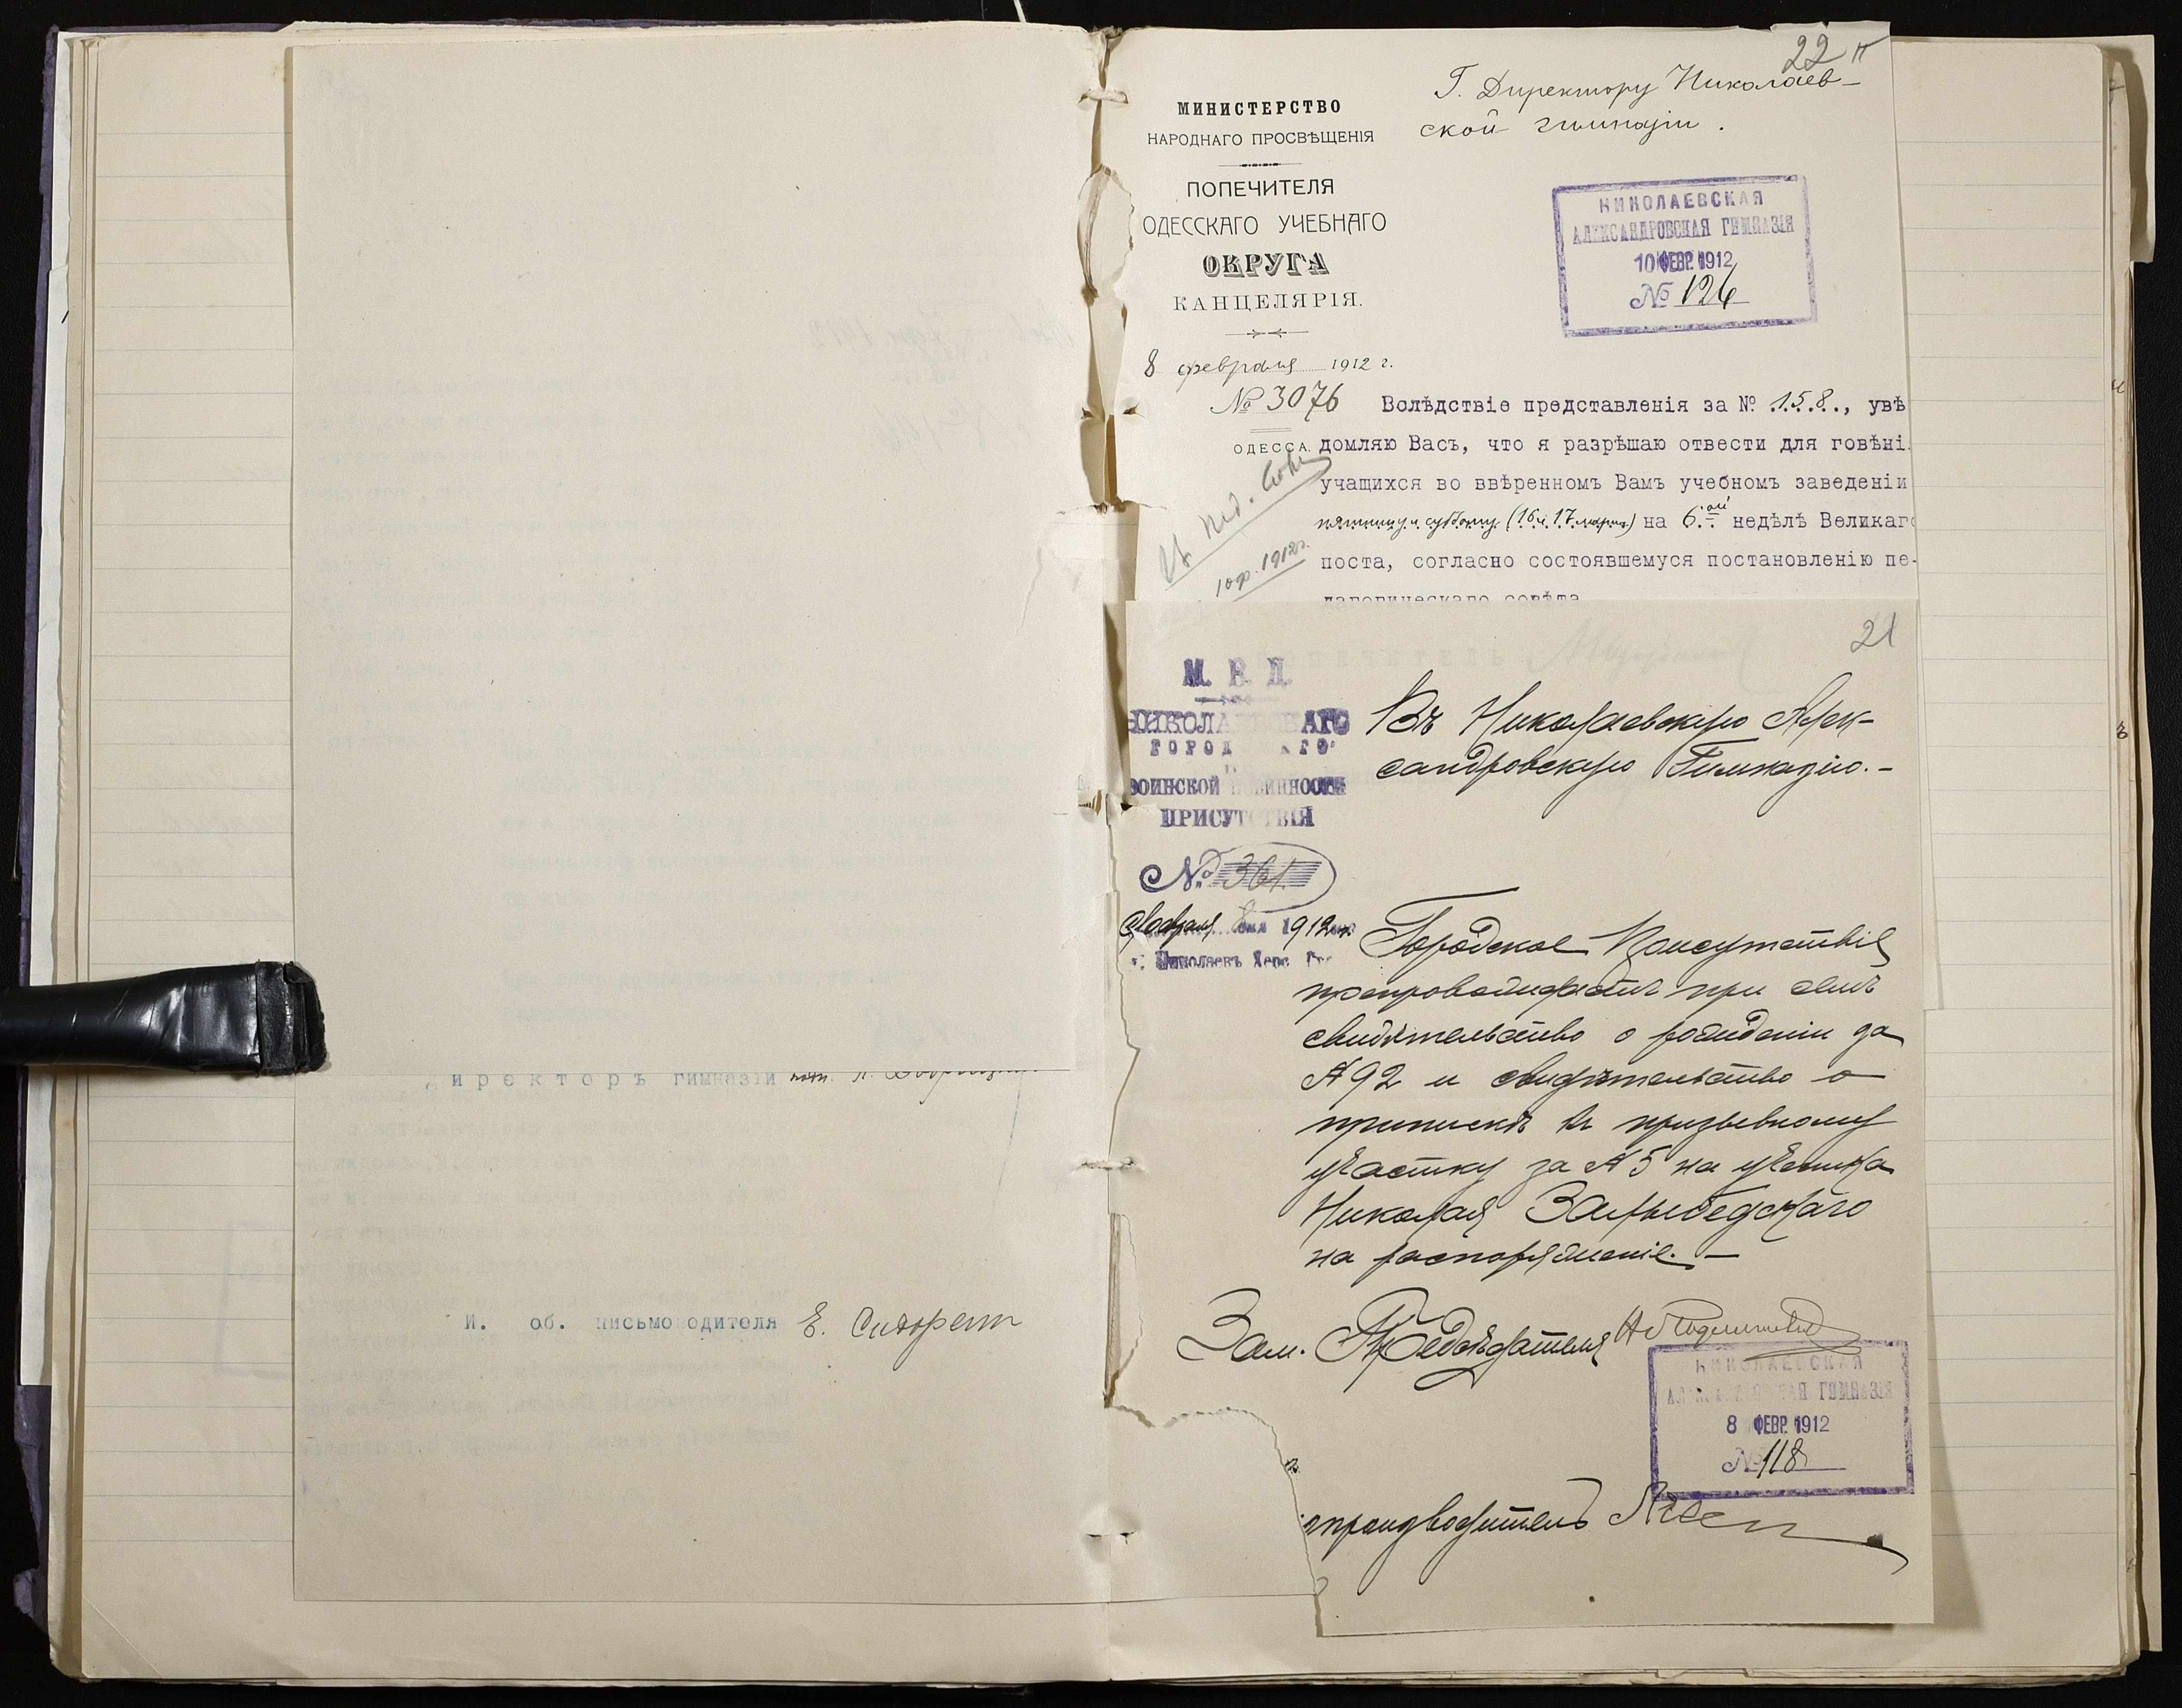 иректоръ гимназіи
И. об. письмоводителя Е. Сидорен
22
Г. Директору Николаев-
ской гимназіи.
МИНИСТЕРСТВО
НАРОДНАГО ПРОСВѢЩЕНІЯ
ПОПЕЧИТЕЛЯ
ОДЕССКАГО УЧЕБНАГО
ОКРУГА
КАНЦЕЛЯРІЯ.
8 февраля 1912 г.
№ 3076
ОДЕССА.
НИКОЛАЕВСКАЯ
АЛЕКСАНДРОВСКАЯ ГИМНАЗІЯ
10 ФЕВР. 1912
№ 126
Вслѣдствіе представленія за № 158, увѣ
домляю Васъ, что я разрѣшаю отвести для говѣні
учащихся во ввѣренномъ Вамъ учебномъ заведеніи
пятницу и субботу (16 и 17 марта) на 6ой недѣлѣ Великаг
поста, согласно состоявшемуся постановленію пе-
дагогическаго совѣта
10 ф. 1912 г.
21
М. В. Д.
НИКОЛАЕВСКАГО
ГОРОДСКАГО
ВОИНСКОЙ ПОВИННОСТИ
ПРИСУТСТВІЯ
№ 361
Февраля 8 дня 1912 г.
г. Николаевъ Херс. Г
Въ Николаевскую Алек-
сандровскую Гимназію.-
Городское Присутствіе
препровождаетъ при семъ
свидѣтельство о рожденіи за
№ 92 и свидѣтельство о
припискѣ къ призывному
участку за № 5 на ученика
Николая
на распоряженіе.-
Зам. Предсѣдателя
НИКОЛАЕВСКАЯ
АЛЕКСАНДРОВСКАЯ ГИМНАЗІЯ
8 ФЕВР. 1912
№ 118
опроизводитель